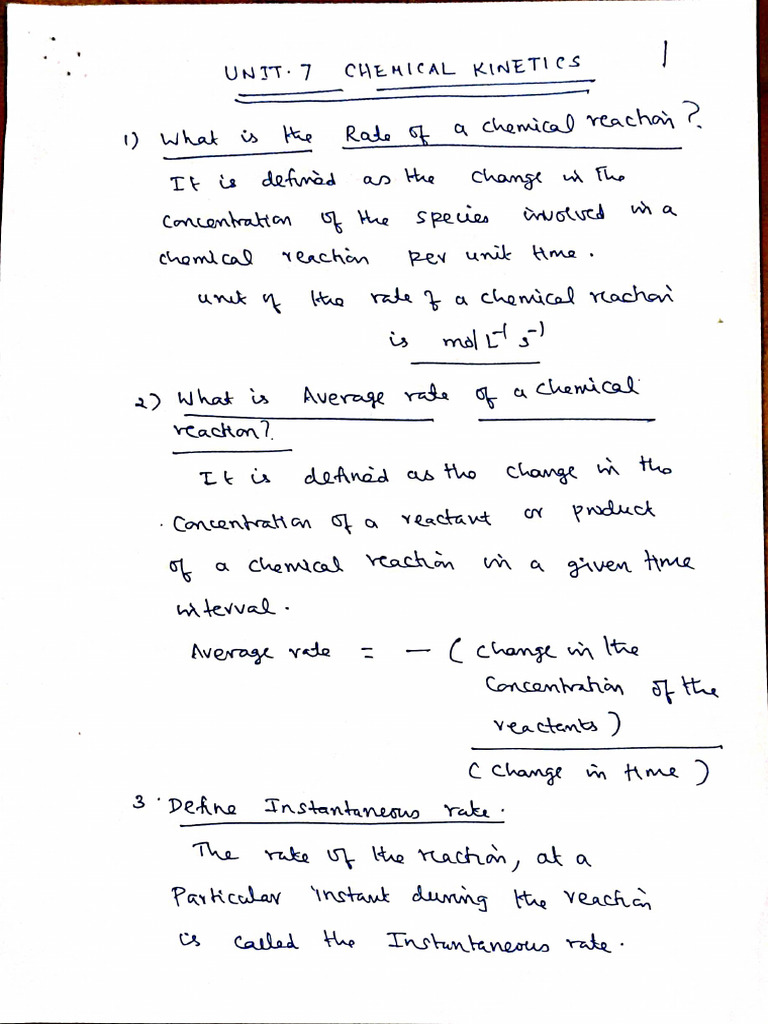 UNIT.7 CHEMICAL KINETICS 1
1) What is the Rate of a chemical reaction?
It is defined as the change in the
concentration of the species involved in a
chemical reaction per unit time.
unit of the rate of a chemical reaction
is mol L⁻¹ s⁻¹
2) What is Average rate of a chemical
reaction?
It is defined as the change in the
concentration of a reactant or product
of a chemical reaction in a given time
interval.
Average rate = - ( change in the
concentration of the
reactants )
( change in time )
3. Define Instantaneous rate.
The rate of the reaction, at a
Particular instant during the reaction
is called the Instantaneous rate.